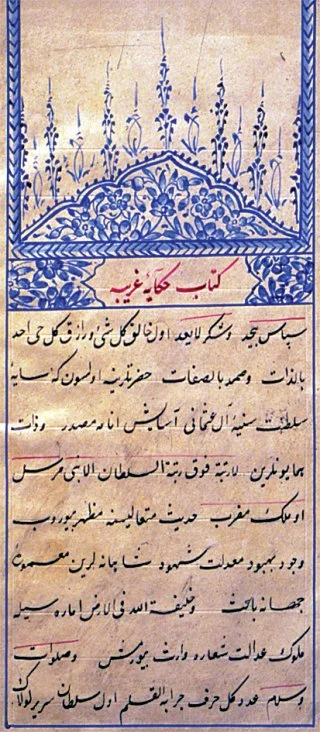 كتاب حكايۀ غريبه
سپاس بيحد وشكر لايعد اول خالق كل شئ ورازق كل حى احد
بالذات وصمد بالصفات حضرتلرينه اولسون كه سايۀ
سلطنت سنيۀ آل عثمانى آسايش انامه مصدر وذات
همايونلرين لارتبة فوق رتبة السلطان الا نبى مرسل
او ملك مقرب حديث متعاليسنه مظهر بيوروب
وجود بهبود معدلت شهود شاهانه لرين معمورۀ
جهانه باعث وخليفة الله فى الارض اماره سيله
ملوك عدالت شعاره وارث بيورمش وصلوات
وسلام عدد كل حرف جرا به القلم اول سلطان سرير لولاك